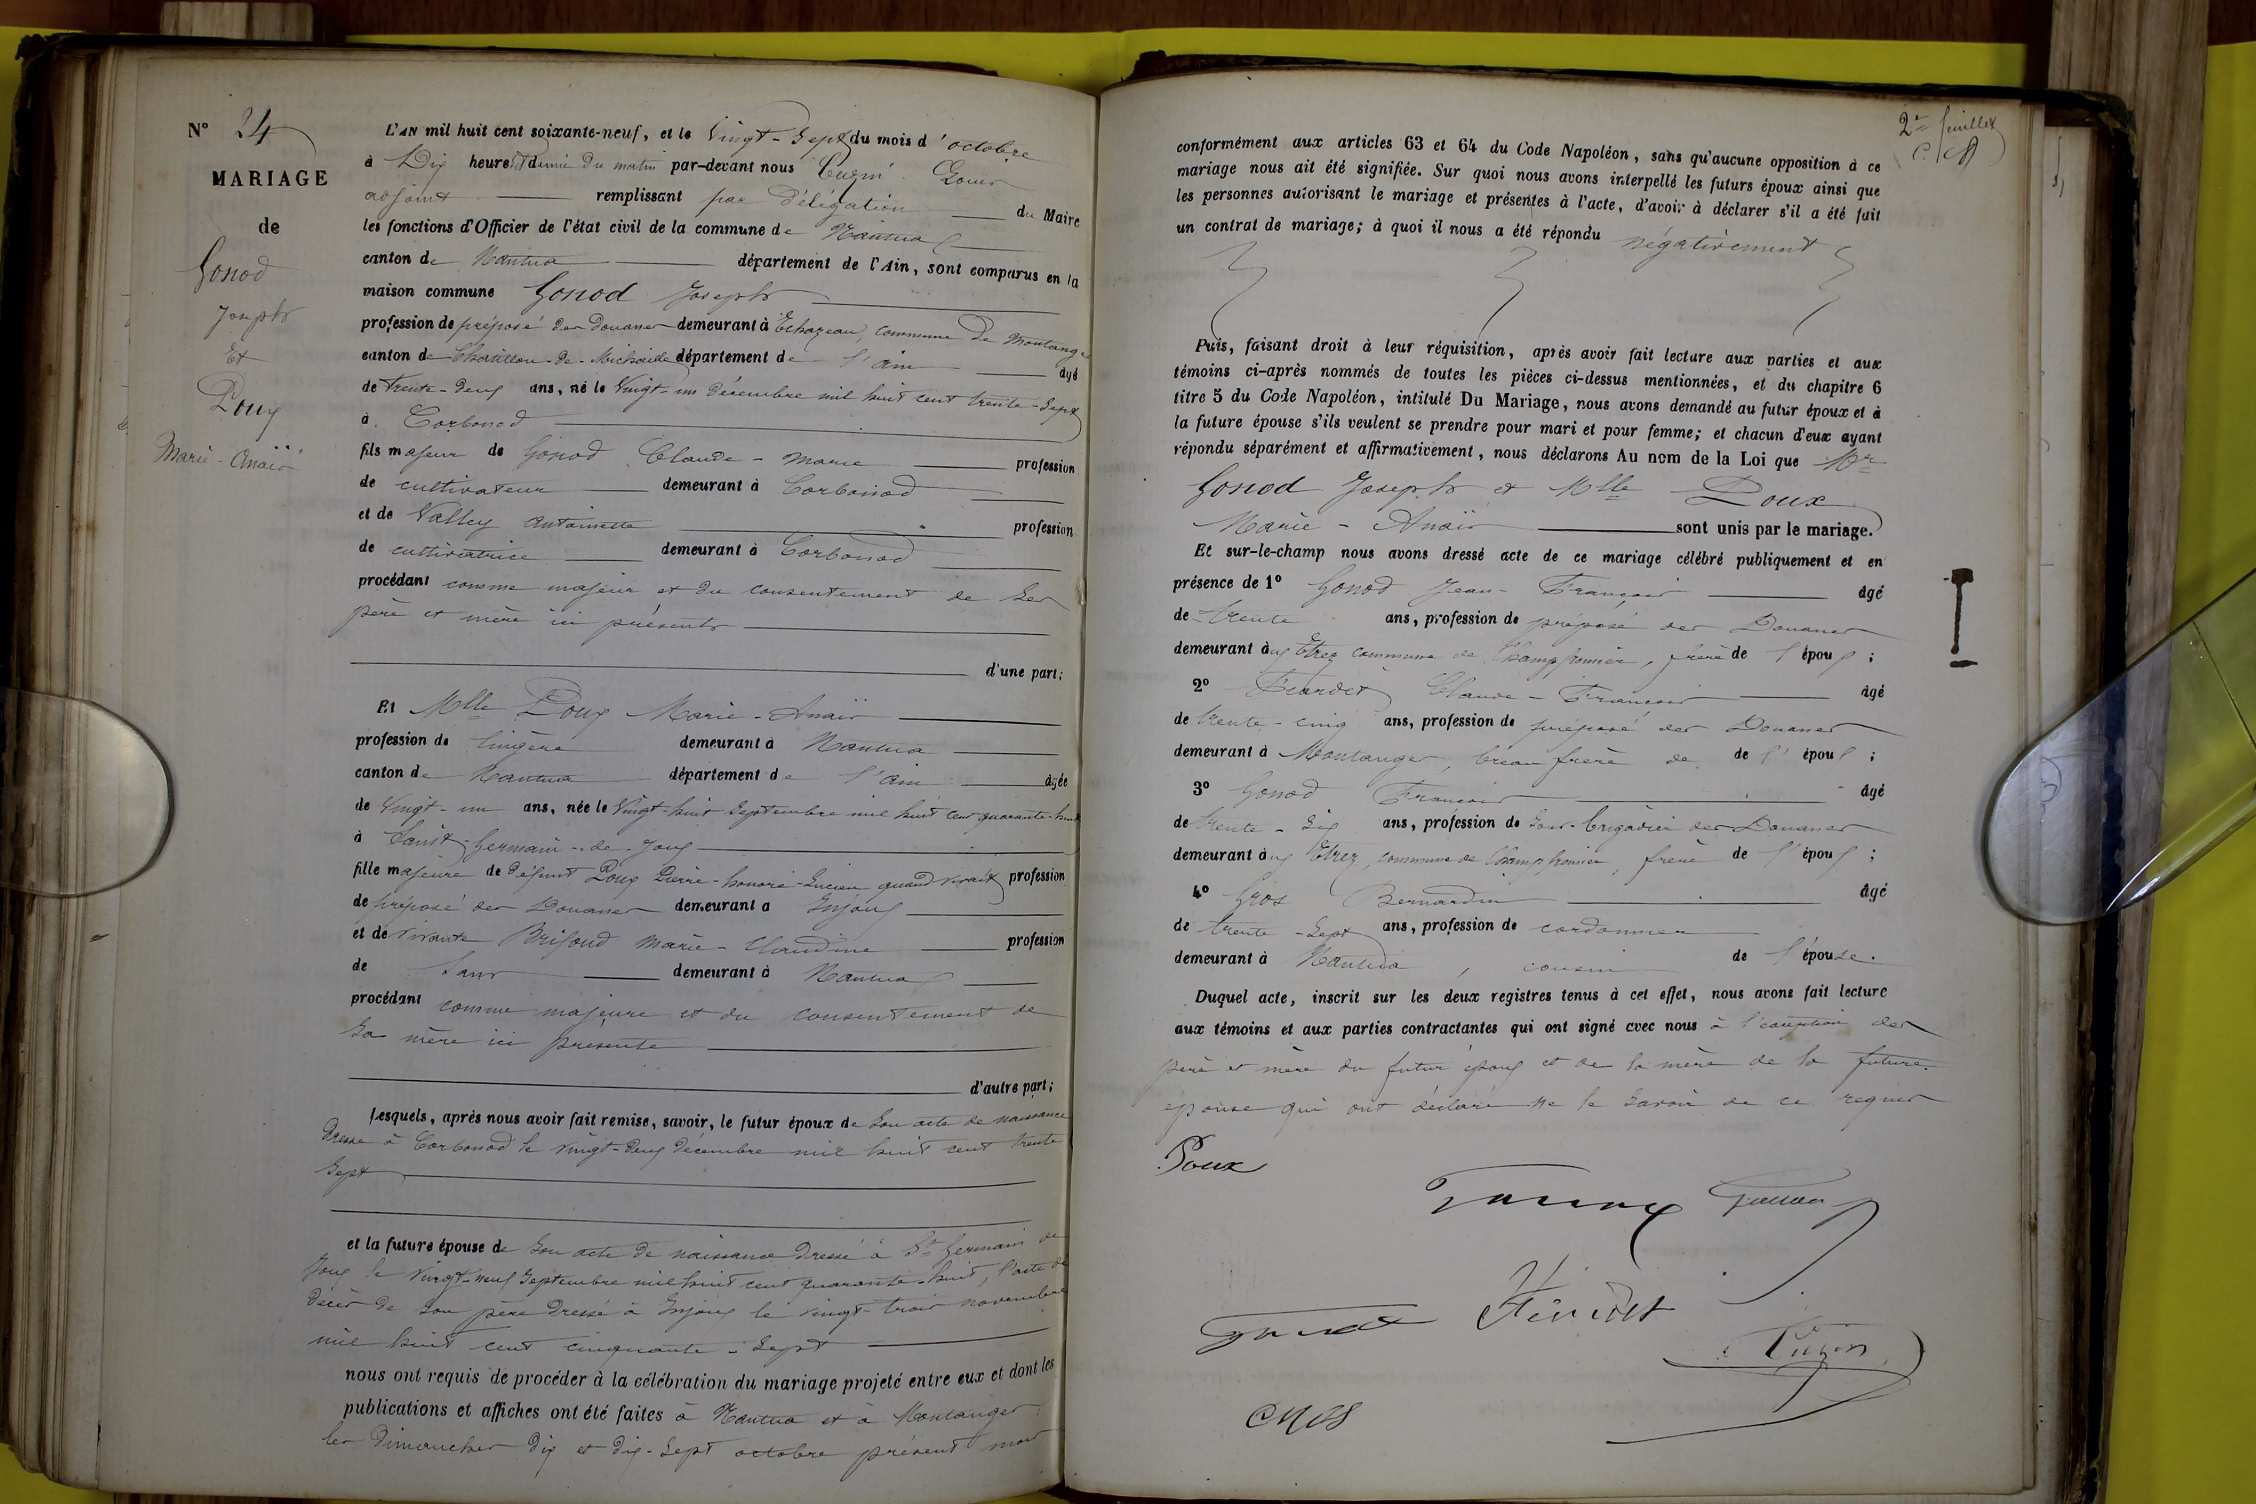 N° 24
MARIAGE
de
Gonod
Joseph
Et
Poux
Marie-Anaïs
L'AN mil huit cent soixante-neuf, et le Vingt-Sept du mois d'octobre
à Dix heures et demie du matin par-devant nous
adjoint remplissant par Délégation du Maire
les fonctions d'Officier de l'état civil de la commune de Nantua
canton de Nantua département de l'Ain, sont comparus en la
maison commune Gonod Joseph
profession de préposé des Douanes demeurant à Echazeau, commune de Montanges
canton de Chatillon-de-Michaille département de l'ain âgé
de trente-deux ans, né le Vingt-un décembre mil huit cent trente-sept
à Corbonod
fils majeur de Gonod Claude-Marie profession
de cultivateur demeurant à Corbonod
et de Valley Antoinette profession
de cultivatrice demeurant à Corbonod
procédant comme majeur et du consentement de ses
père et mère ici présents
d'une part;
Et Mlle Poux Marie-Anaïs
profession de lingère demeurant à Nantua
canton de Nantua département de l'ain âgée
de Vingt-un ans, née le Vingt-huit Septembre mil huit cent quarante-huit
à Saint-Germain-de-Joux
fille majeure de défunt Poux Pierre-honoré-Lucien quand vivait profession
de préposé des Douanes demeurant à Injoux
et de vivante Brifoud Marie-Claudine profession
de sans demeurant à Nantua
procédant comme majeure et du consentement de
sa mère ici présente
d'autre part;
Lesquels, après nous avoir fait remise, savoir, le futur époux de son acte de naissance
dressé à Corbonod le vingt-deux décembre mil huit cent trente
sept
et la future épouse de son acte de naissance dressé à St Germain de
Joux le vingt-neuf Septembre mil huit cent quarante-huit, l'acte de
décès de son père dressé à Injoux le vingt-trois novembre
mil huit cent cinquante-sept
nous ont requis de procéder à la célébration du mariage projeté entre eux et dont les
publications et affiches ont été faites à Nantua et à Montanges
les dimanches dix et dix-sept octobre présent mois
2e feuillet
conformément aux articles 63 et 64 du Code Napoléon, sans qu'aucune opposition à ce
mariage nous ait été signifiée. Sur quoi nous avons interpellé les futurs époux ainsi que
les personnes autorisant le mariage et présentes à l'acte, d'avoir à déclarer s'il a été fait
un contrat de mariage; à quoi il nous a été répondu négativement
Puis, faisant droit à leur réquisition, après avoir fait lecture aux parties et aux
témoins ci-après nommés de toutes les pièces ci-dessus mentionnées, et du chapitre 6
titre 5 du Code Napoléon, intitulé Du Mariage, nous avons demandé au futur époux et à
la future épouse s'ils veulent se prendre pour mari et pour femme; et chacun d'eux ayant
répondu séparément et affirmativement, nous déclarons Au nom de la Loi que Mr
Gonod Joseph et Mlle Poux
Marie-Anaïs sont unis par le mariage.
Et sur-le-champ nous avons dressé acte de ce mariage célébré publiquement et en
présence de 1° Gonod Jean-François âgé
de trente ans, profession de préposé des Douanes
demeurant aux Etrez commune de Champfromier, frère de l'époux;
2° Claude-François âgé
de trente-cinq ans, profession de préposé des Douanes
demeurant à Montanges, beau frère de de l'époux;
3° Gonod François âgé
de trente-six ans, profession de sous-brigadier des Douanes
demeurant aux Etrez, commune de Champfromier, frère de l'époux;
4° Gros Bernardin âgé
de trente-sept ans, profession de cordonnier
demeurant à Nantua, cousin de l'épouse.
Duquel acte, inscrit sur les deux registres tenus à cet effet, nous avons fait lecture
aux témoins et aux parties contractantes qui ont signé avec nous à l'exception des
père et mère du futur époux et de la mère de la future
épouse qui ont déclaré ne le savoir de ce requis
Poux